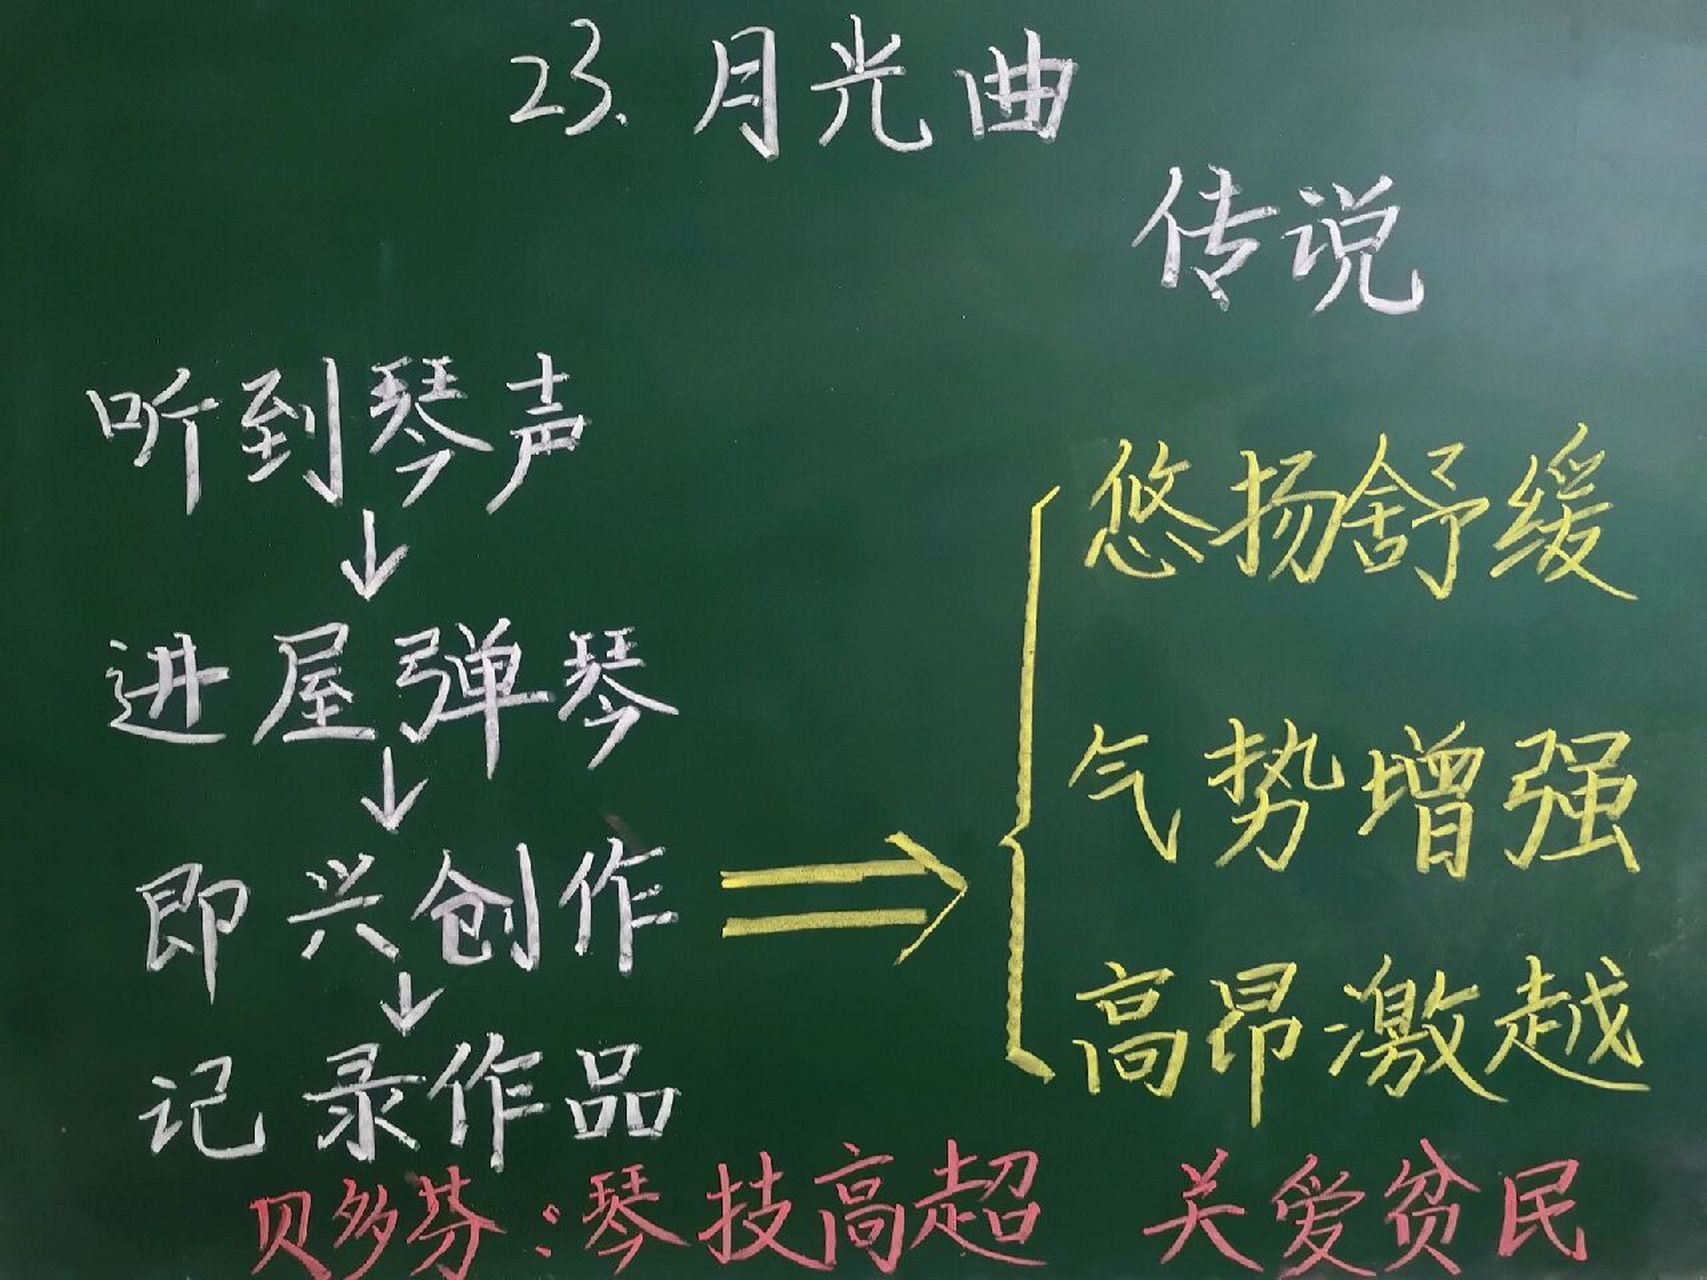 23.月光曲
传说
听到琴声
↓
进屋弹琴
↓
即兴创作
↓
记录作品
⇒
悠扬舒缓
气势增强
高昂激越
贝多芬:琴技高超 关爱贫民